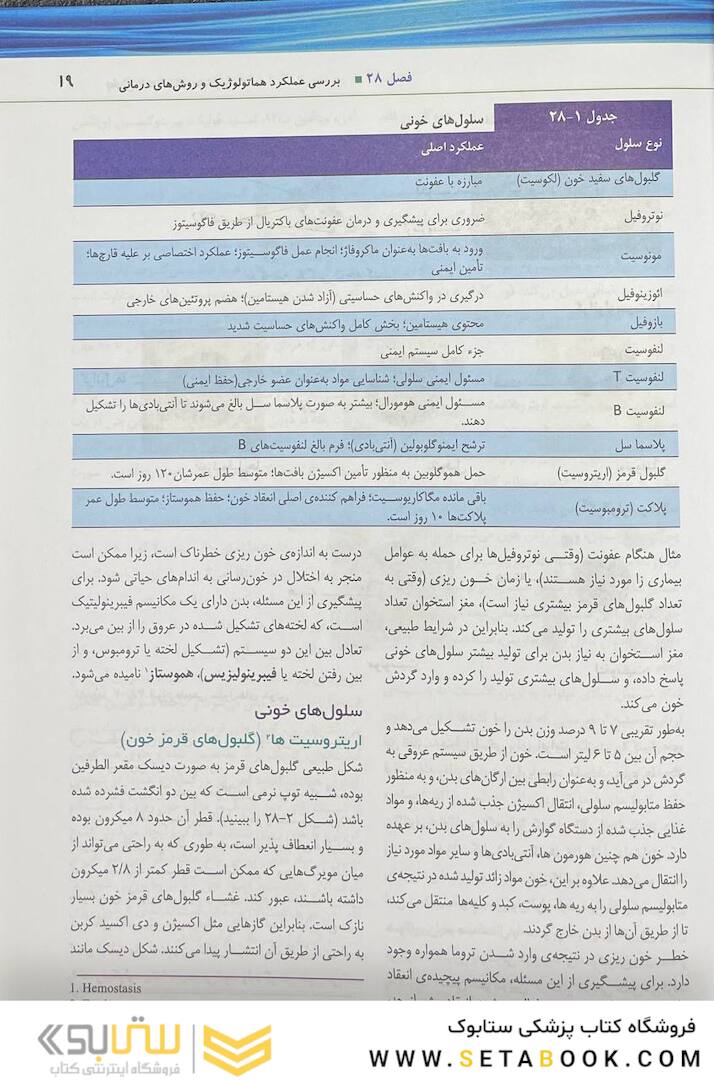 فصل ۲۸ ■ بررسی عملکرد هماتولوژیک و روش‌های درمانی ۱۹
جدول ۱-۲۸ سلول‌های خونی
نوع سلول عملکرد اصلی
گلبول‌های سفید خون (لکوسیت) مبارزه با عفونت
نوتروفیل ضروری برای پیشگیری و درمان عفونت‌های باکتریال از طریق فاگوسیتوز
مونوسیت ورود به بافت‌ها به‌عنوان ماکروفاژ؛ انجام عمل فاگوسیتوز؛ عملکرد اختصاصی بر علیه قارچ‌ها؛
تأمین ایمنی
ائوزینوفیل درگیری در واکنش‌های حساسیتی (آزاد شدن هیستامین)؛ هضم پروتئین‌های خارجی
بازوفیل محتوی هیستامین؛ بخش کامل واکنش‌های حساسیت شدید
لنفوسیت جزء کامل سیستم ایمنی
لنفوسیت T مسئول ایمنی سلولی؛ شناسایی مواد به‌عنوان عضو خارجی(حفظ ایمنی)
لنفوسیت B مسئول ایمنی هومورال؛ بیشتر به صورت پلاسما سل بالغ می‌شوند تا آنتی‌بادی‌ها را تشکیل
دهند.
پلاسما سل ترشح ایمنوگلوبولین (آنتی‌بادی)؛ فرم بالغ لنفوسیت‌های B
گلبول قرمز (اریتروسیت) حمل هموگلوبین به منظور تأمین اکسیژن بافت‌ها؛ متوسط طول عمرشان ۱۲۰ روز است.
پلاکت (ترومبوسیت) باقی مانده مگاکاریوسیت؛ فراهم کننده‌ی اصلی انعقاد خون؛ حفظ هموستاز؛ متوسط طول عمر
پلاکت‌ها ۱۰ روز است.
مثال هنگام عفونت (وقتی نوتروفیل‌ها برای حمله به عوامل
بیماری زا مورد نیاز هستند)، یا زمان خون ریزی (وقتی به
تعداد گلبول‌های قرمز بیشتری نیاز است)، مغز استخوان تعداد
سلول‌های بیشتری را تولید می‌کند. بنابراین در شرایط طبیعی،
مغز استخوان به نیاز بدن برای تولید بیشتر سلول‌های خونی
پاسخ داده، و سلول‌های بیشتری تولید را کرده و وارد گردش
خون می‌کند.
به‌طور تقریبی ۷ تا ۹ درصد وزن بدن را خون تشکیل می‌دهد و
حجم آن بین ۵ تا ۶ لیتر است. خون از طریق سیستم عروقی به
گردش در می‌آید، و به‌عنوان رابطی بین ارگان‌های بدن، و به منظور
حفظ متابولیسم سلولی، انتقال اکسیژن جذب شده از ریه‌ها، و مواد
غذایی جذب شده از دستگاه گوارش را به سلول‌های بدن، بر عهده
دارد. خون هم چنین هورمون ها، آنتی‌بادی‌ها و سایر مواد مورد نیاز
را انتقال می‌دهد. علاوه بر این، خون مواد زائد تولید شده در نتیجه‌ی
متابولیسم سلولی را به ریه ها، پوست، کبد و کلیه‌ها منتقل می‌کند،
تا از طریق آن‌ها از بدن خارج گردند.
خطر خون ریزی در نتیجه‌ی وارد شدن تروما همواره وجود
دارد. برای پیشگیری از این مسئله، مکانیسم پیچیده‌ی انعقاد
درست به اندازه‌ی خون ریزی خطرناک است، زیرا ممکن است
منجر به اختلال در خون‌رسانی به اندام‌های حیاتی شود. برای
پیشگیری از این مسئله، بدن دارای یک مکانیسم فیبرینولیتیک
است، که لخته‌های تشکیل شده در عروق را از بین می‌برد.
تعادل بین این دو سیستم (تشکیل لخته یا ترومبوس، و از
بین رفتن لخته یا فیبرینولیزیس)، هموستاز۱ نامیده می‌شود.
سلول‌های خونی
اریتروسیت ها۲ (گلبول‌های قرمز خون)
شکل طبیعی گلبول‌های قرمز به صورت دیسک مقعر الطرفین
بوده، شبیه توپ نرمی است که بین دو انگشت فشرده شده
باشد (شکل ۲-۲۸ را ببینید). قطر آن حدود ۸ میکرون بوده
و بسیار انعطاف پذیر است، به طوری که به راحتی می‌تواند از
میان مویرگ‌هایی که ممکن است قطر کمتر از ۲/۸ میکرون
داشته باشند، عبور کند. غشاء گلبول‌های قرمز خون بسیار
نازک است. بنابراین گازهایی مثل اکسیژن و دی اکسید کربن
به راحتی از طریق آن انتشار پیدا می‌کنند. شکل دیسک مانند
1. Hemostasis
فروشگاه کتاب پزشکی ستابوک
WWW.SETABOOK.COM
ستابوک
فروشگاه اینترنتی کتاب